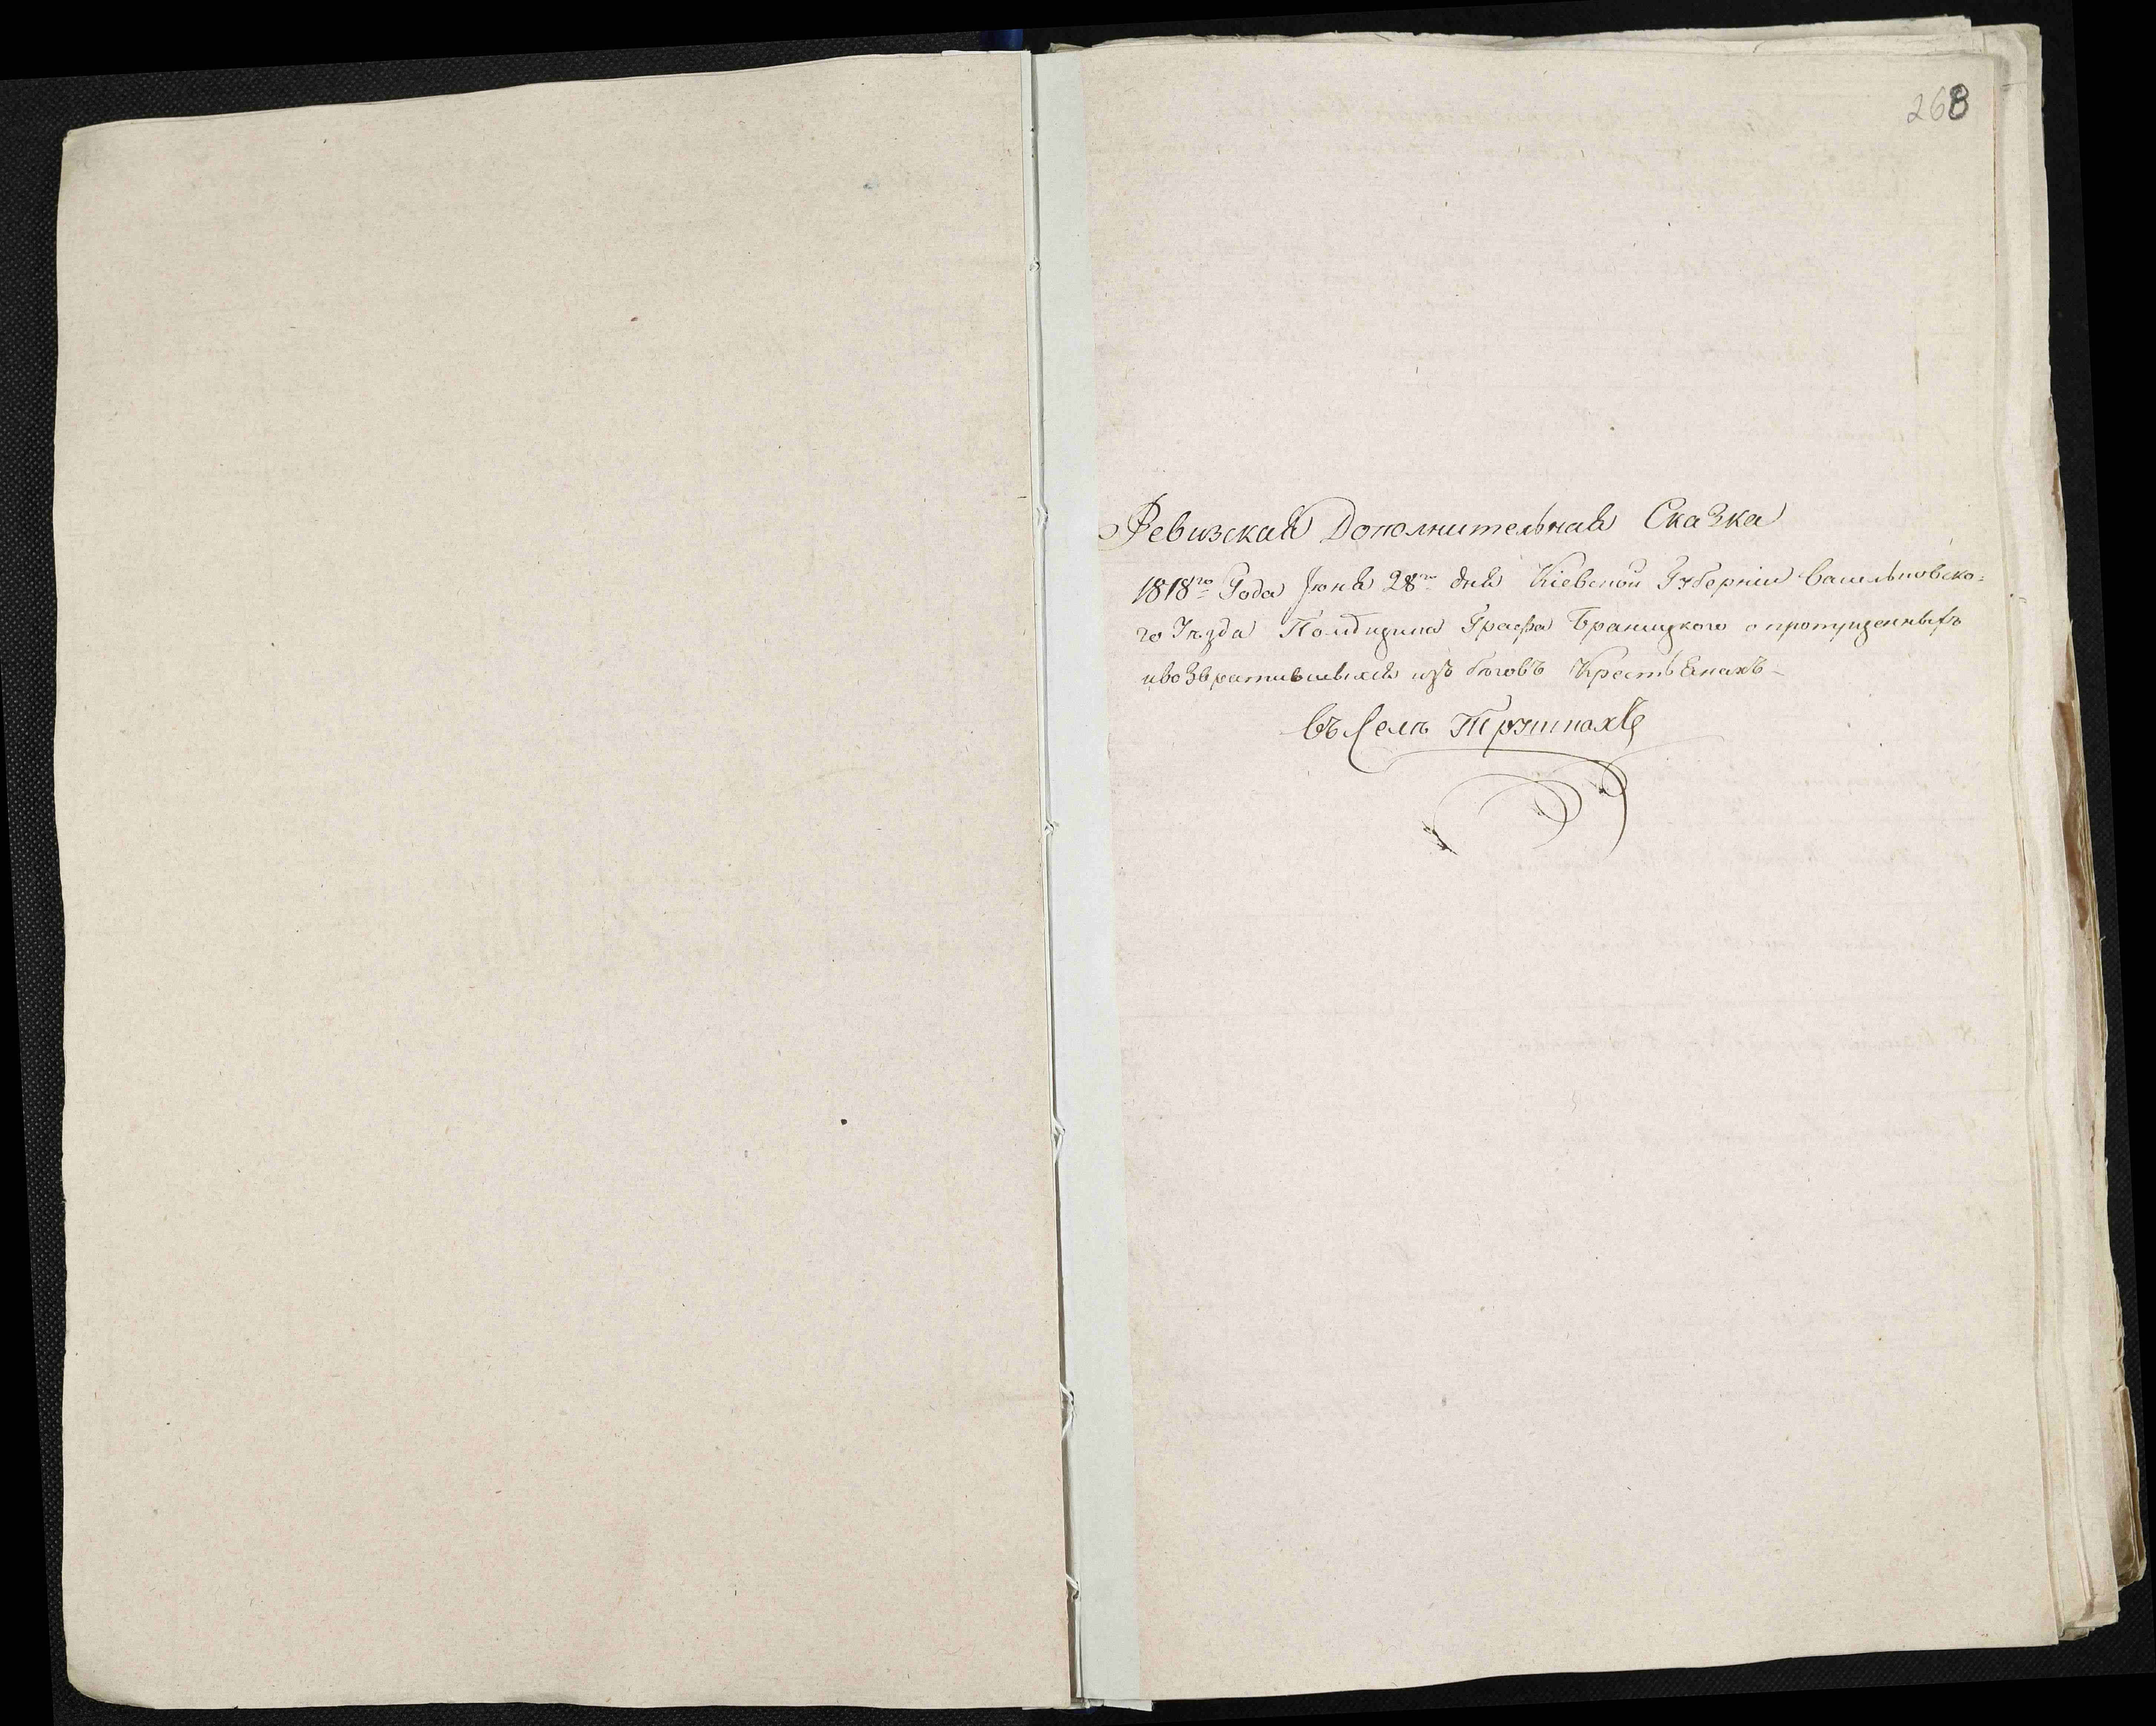 268
Ревизская Дополнительная Сказка
1818го Года Июня 28го дня Кіевской Губерніи Васильковско-
го Уѣзда Помѣщика Графа Браницкого о пропущенныхъ
ивозвратившихся изъ бѣговъ Крестьянахъ
Въ Селѣ Трушкахъ